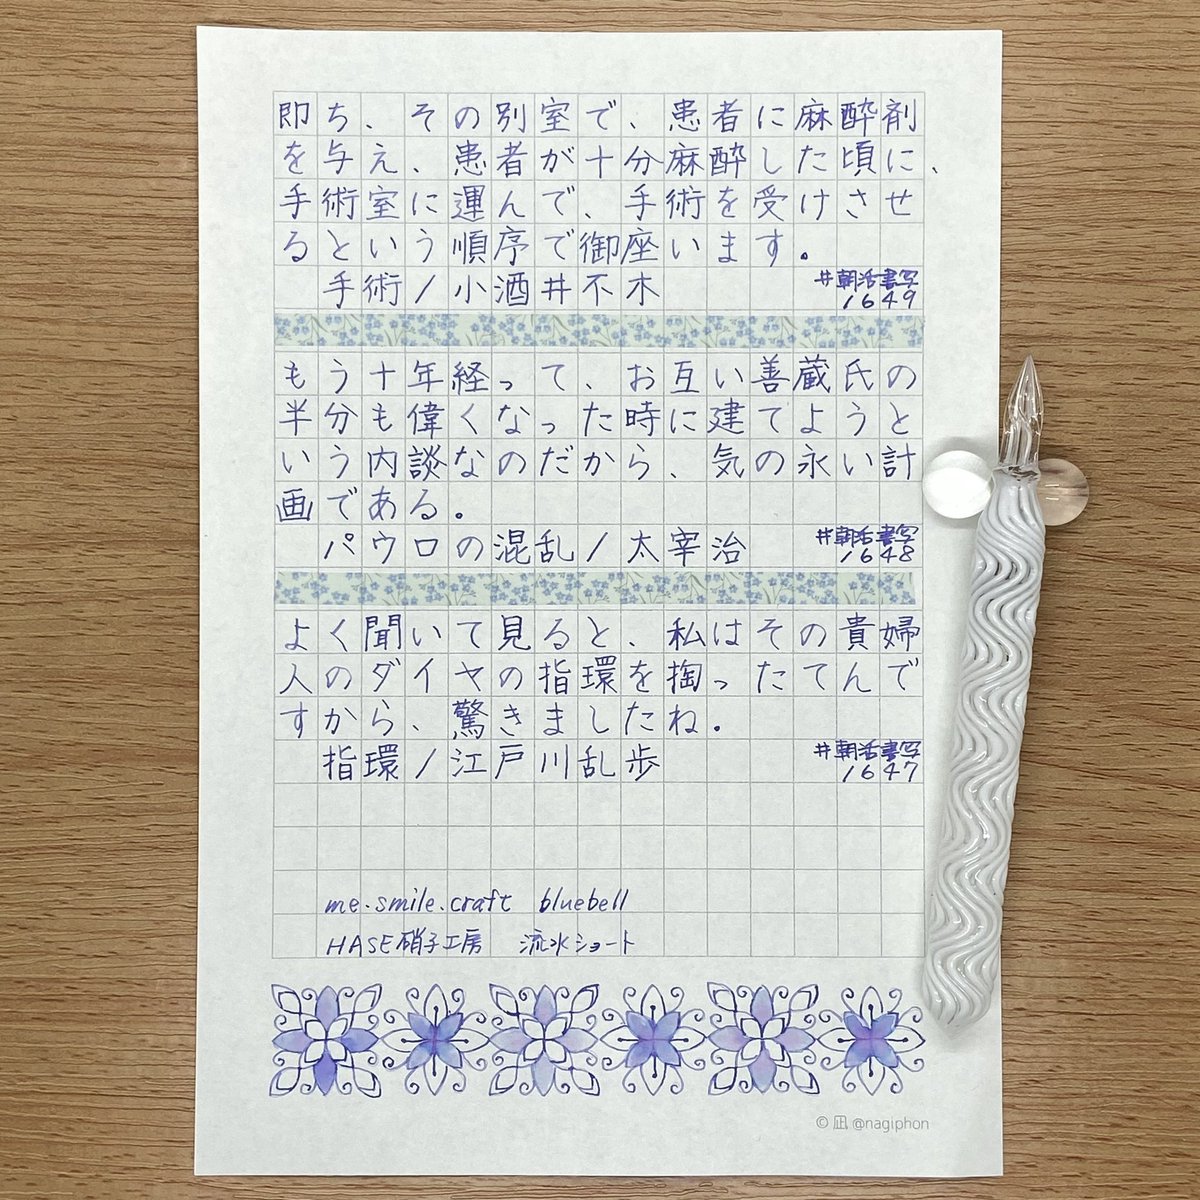 即ち、その別室で、患者に麻酔剤
を与え、患者が十分麻酔した頃に、
手術室に運んで、手術を受けさせ
るという順序で御座います。
手術/小酒井不木
#朝活書写
1649
もう十年経って、お互い善蔵氏の
半分も偉くなった時に建てようと
いう内談なのだから、気の永い計
画である。
パウロの混乱/太宰治
#朝活書写
1648
よく聞いて見ると、私はその貴婦
人のダイヤの指環を掏ったてんで
すから、驚きましたね。
指環/江戸川乱歩
#朝活書写
1647
me.smile.craft bluebell
HASE硝子工房 流水ショート
© 凪 @nagiphon